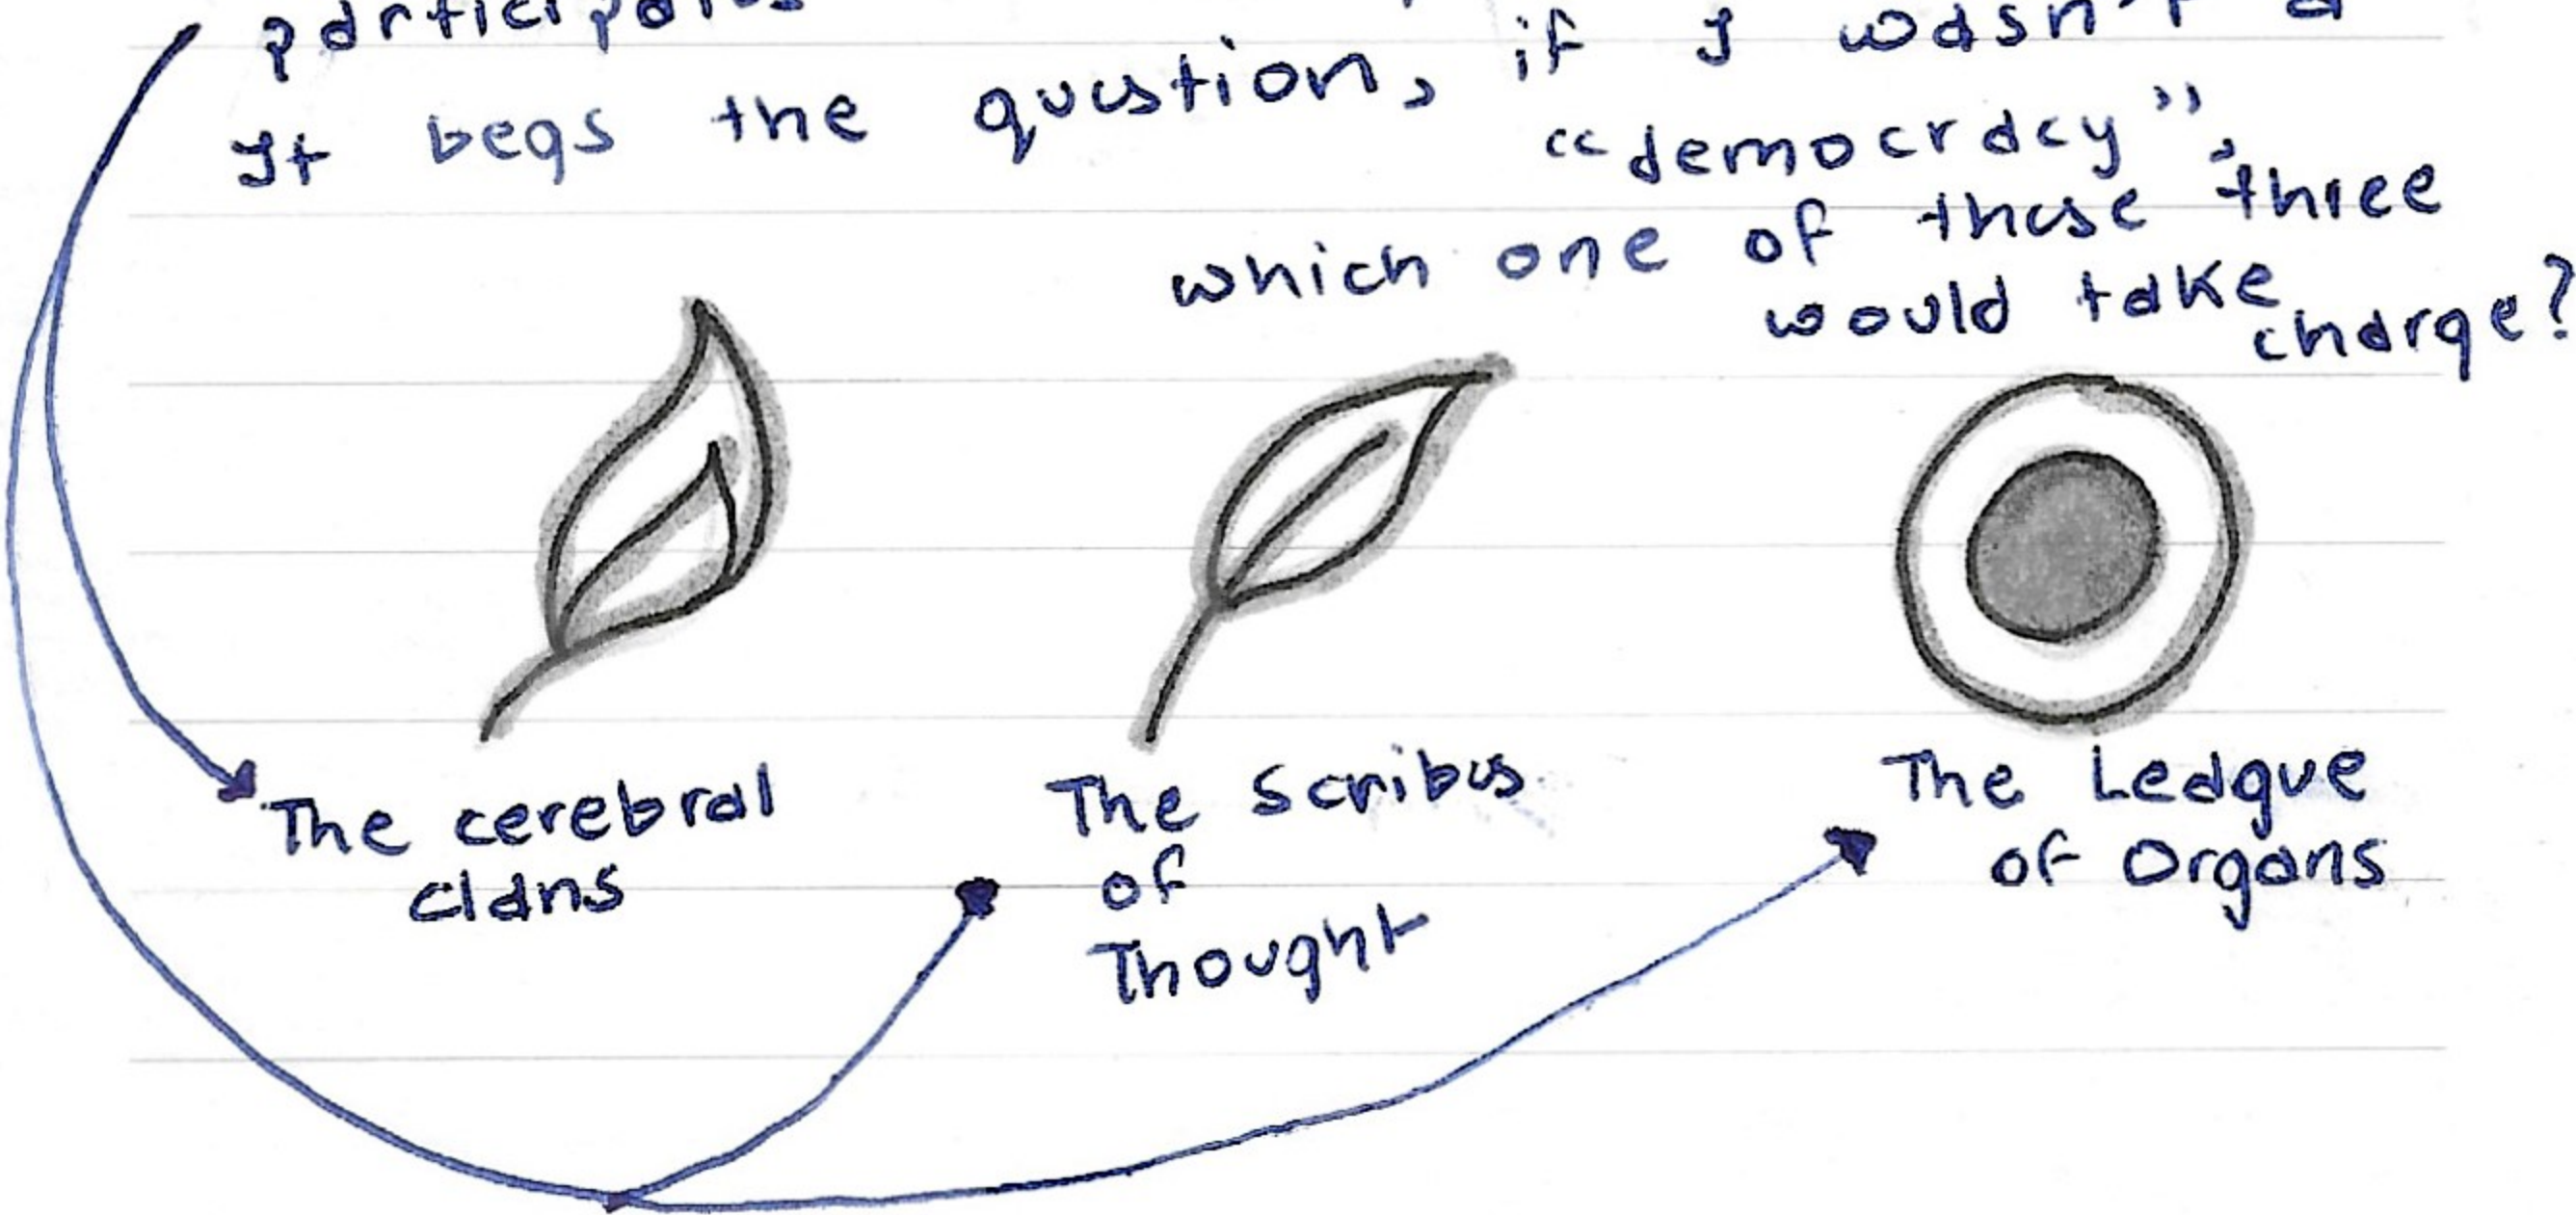 It begs the question, if I wasn't a
"democracy",
which one of these three
would take
charge?
The cerebral
clans
The Scribes
of
Thought
The League
of Organs